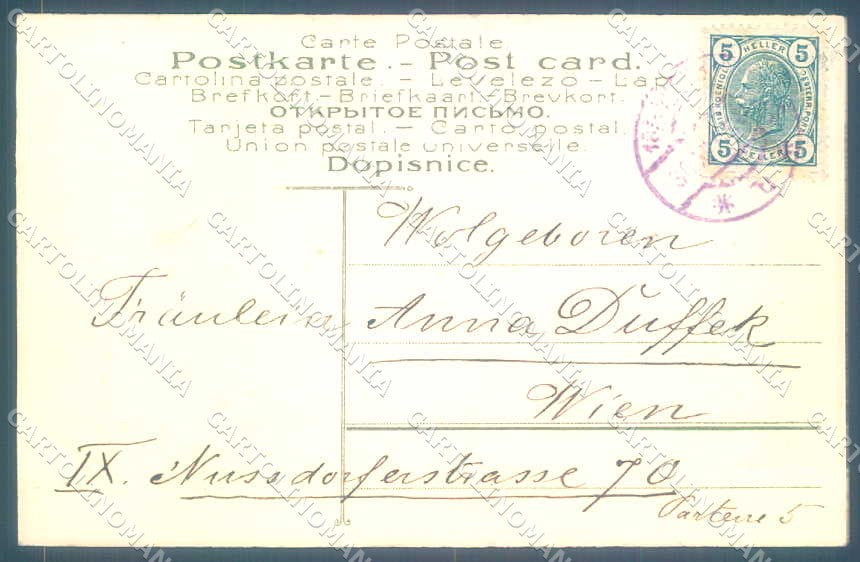 Carte Postale
Postkarte. - Post card.
Cartolina postale. - Levelezö - Lap
Brefkort - Briefkaart - Brevkort.
ОТКРЫТОЕ ПИСЬМО.
Tarjeta postal. - Carto postal.
Union postale universelle.
Dopisnice.
5 HELLER 5
5 HELLER 5
Wolgeboren
Fräulein Anna Duffek
Wien
IX. Nussdorferstrasse 70
Parterre 5
CARTOLINOMANIA